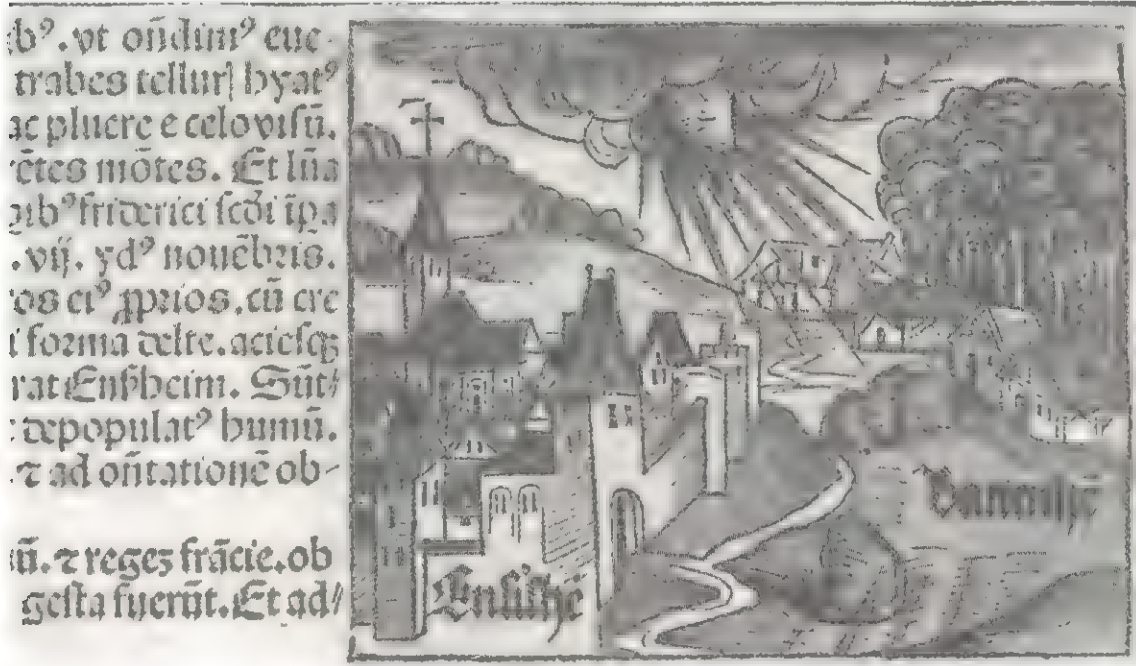 bꝰ. vt oñdimꝰ eue
trabes tellurꝭ hyatꝰ
ac pluere e celo visū.
rētes mōtes. Et lūa
ibꝰ friderici scďi īpa
.vij. ydꝰ nouēbris.
os eiꝰ ꝓprios. cū cre
forma delte. aciesqꝫ
rat Ensßheim. Sūt
depopulatꝰ humū.
⁊ ad oñtationē ob-
ū. ⁊ reges frācie. ob
gesta fuerūt. Et ad
Ensißhē